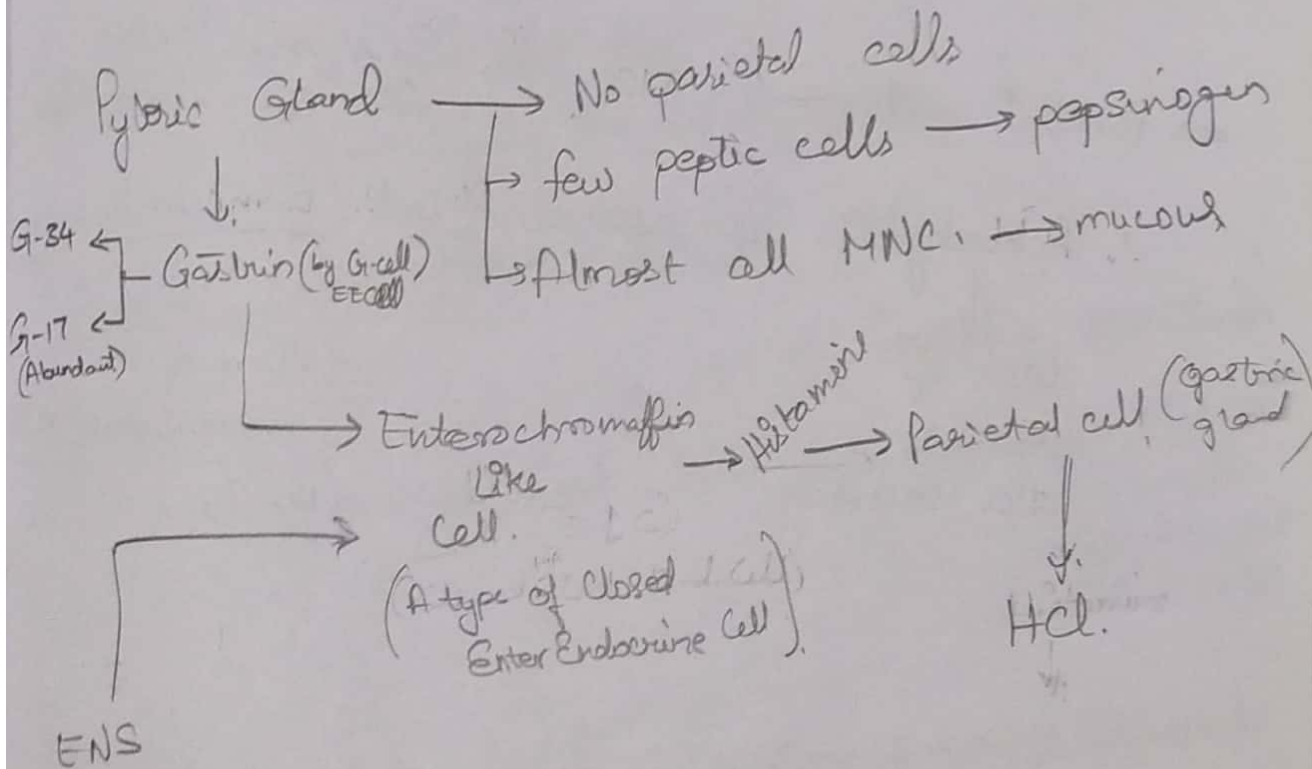 Pyloric Gland → No parietal cells
→ few peptic cells → pepsinogen
→ Almost all MNC. → mucous
G-34
Gastrin (by G-cell)
EE Cell
G-17
(Abundant)
Enterochromaffin → Histamine → Parietal cell (gastric
gland)
Like
Cell.
(A type of Closed
Enter Endocrine Cell).
HCl.
ENS